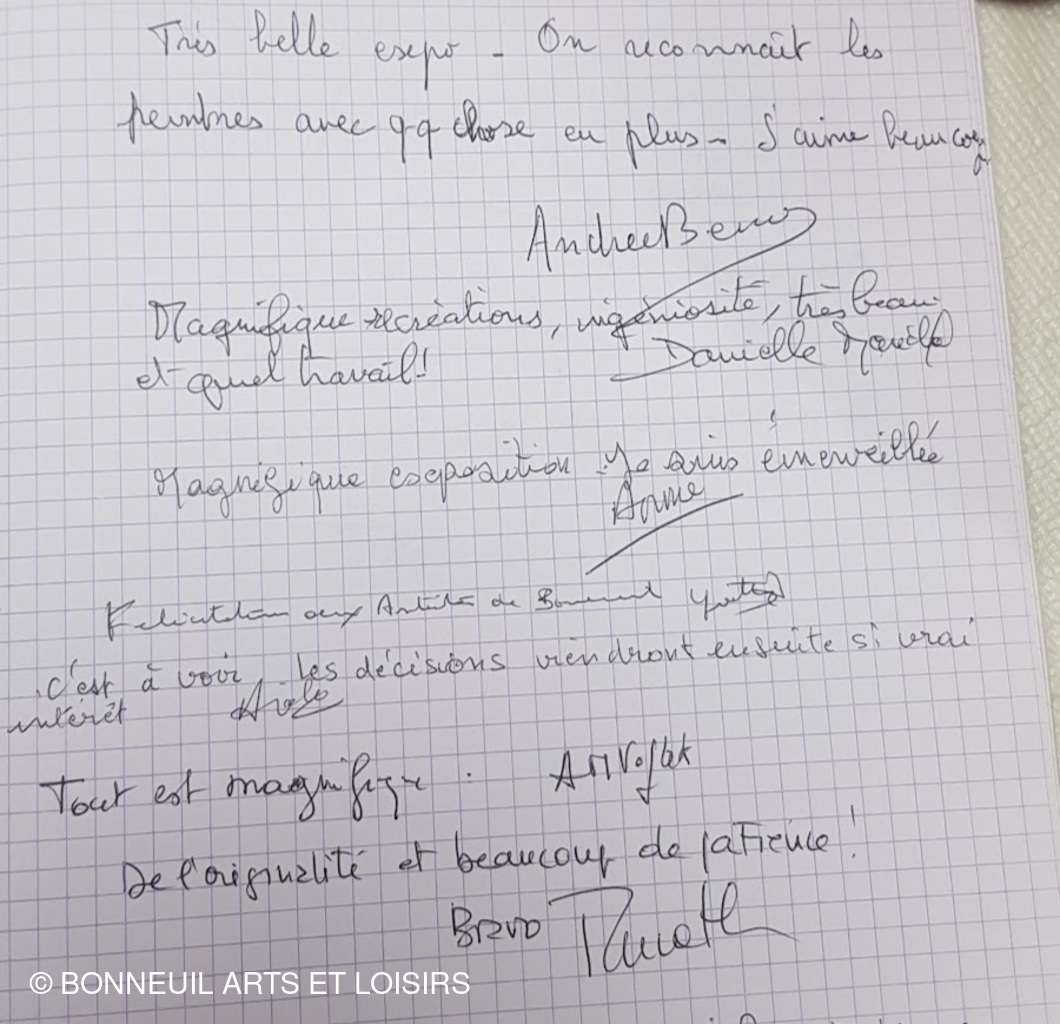 Très belle expo - On reconnaît les
peintres avec qq chose en plus - J'aime beaucoup
Andree
Magnifique recréations, ingéniosité, très beau
et quel travail! Danielle
Magnifique exposition. Je suis émerveillée
Annie
Félicitation aux Artistes de Bonneuil
C'est à voir, les décisions viendront ensuite si vrai
intérêt
Tout est magnifique.
De l'originalité et beaucoup de patience!
Bravo
© BONNEUIL ARTS ET LOISIRS